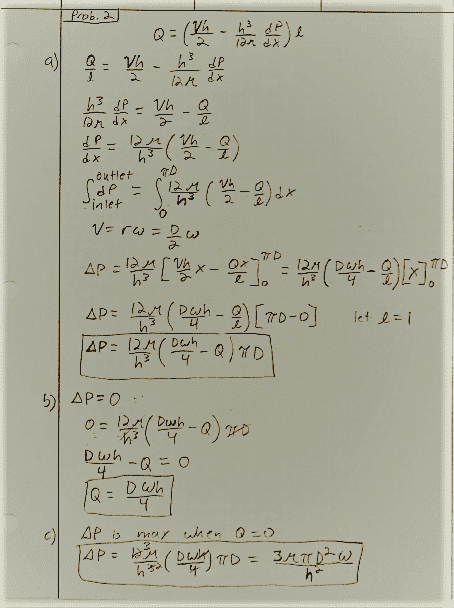 Prob. 2
Q = (Vh/2 - h³/12μ dP/dx) l
a) Q/l = Vh/2 - h³/12μ dP/dx
h³/12μ dP/dx = Vh/2 - Q/l
dP/dx = 12μ/h³ (Vh/2 - Q/l)
∫_inlet^outlet dP = ∫_0^πD 12μ/h³ (Vh/2 - Q/l) dx
V = rω = D/2 ω
ΔP = 12μ/h³ [Vh/2 x - Qx/l]_0^πD = 12μ/h³ (Dωh/4 - Q/l)[x]_0^πD
ΔP = 12μ/h³ (Dωh/4 - Q/l) [πD-0] let l = 1
ΔP = 12μ/h³ (Dωh/4 - Q) πD
b) ΔP = 0
0 = 12μ/h³ (Dωh/4 - Q) πD
Dωh/4 - Q = 0
Q = Dωh/4
c) ΔP is max when Q = 0
ΔP = 12³μ/h³² (Dωh/4) πD = 3μπD²ω/h²